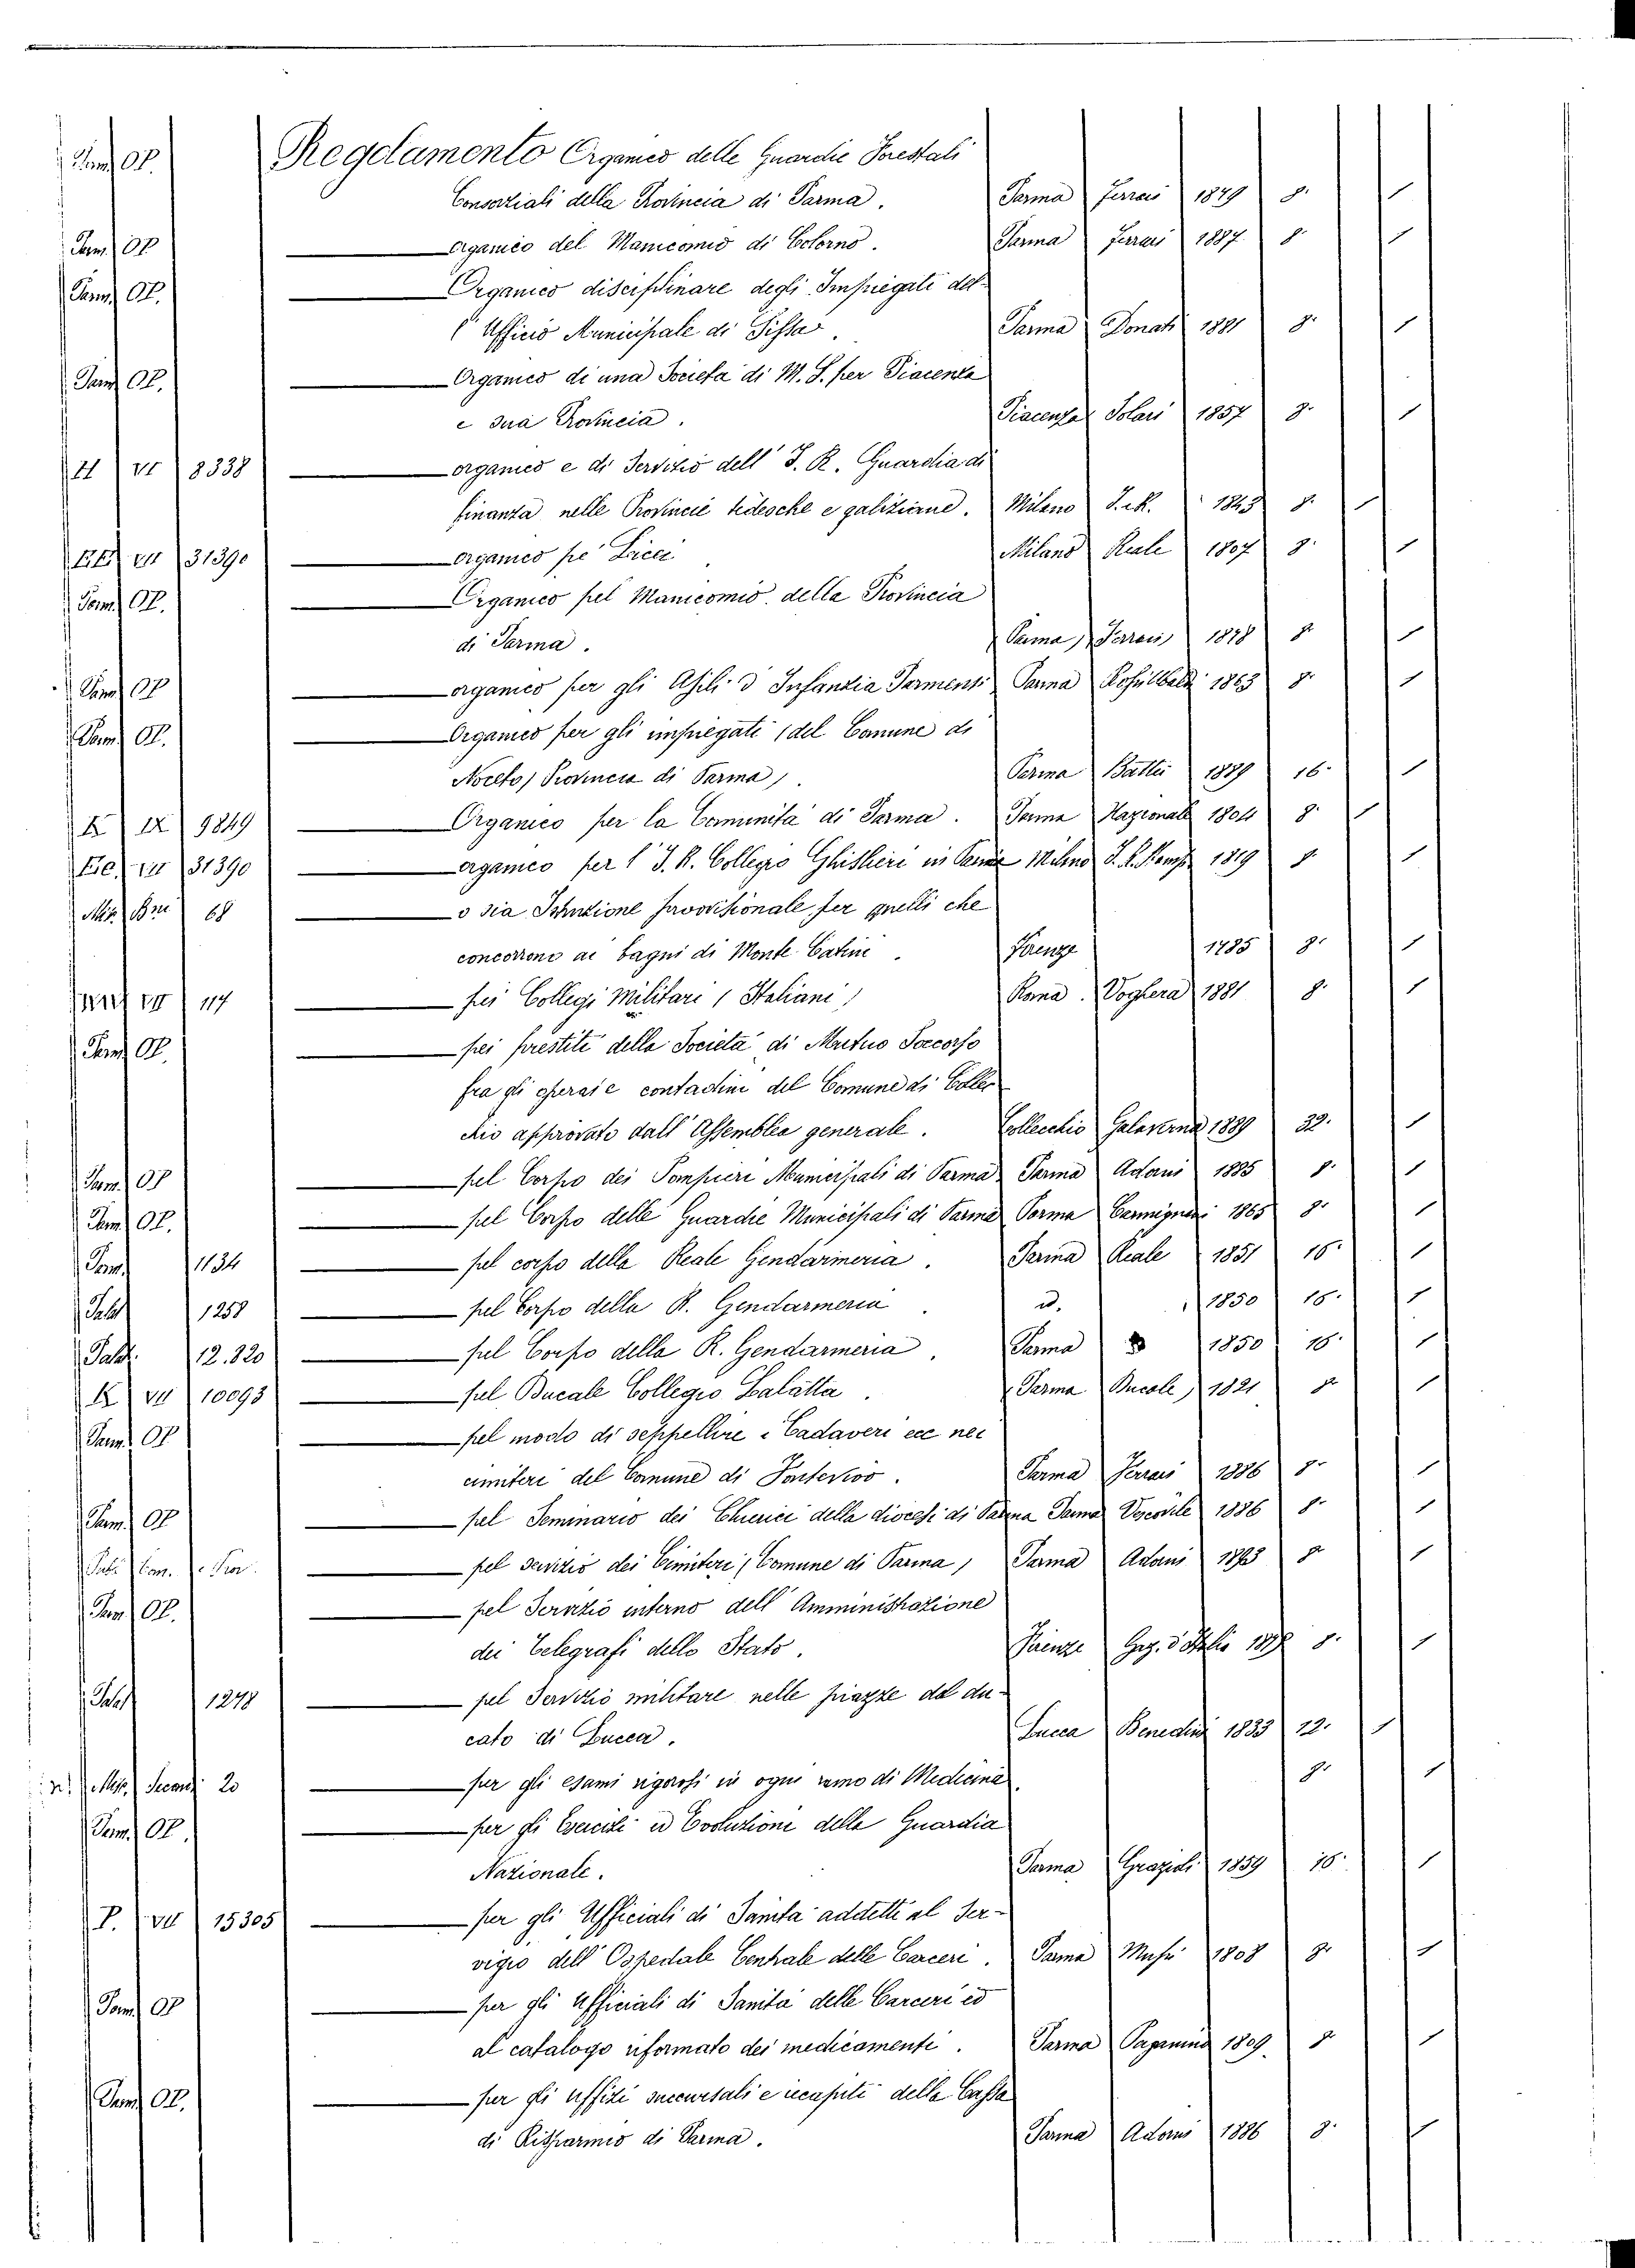 Parm. OP. Regolamento Organico delle Guardie Forestali
Consorziali della Provincia di Parma. Parma Ferrari 1879 8º 1
Parm. OP organico del Manicomio di Colorno. Parma Ferrari 1887 8º 1
Parm. OP. Organico disciplinare degli Impiegati del-
l'Ufficio Municipale di Sissa. Parma Donati 1881 8º 1
Parm. OP. Organico di una Società di M. S. per Piacenza
e sua Provincia. Piacenza Solari 1857 8º 1
H VI 8338 organico e di Servizio dell' I. R. Guardia di
finanza nelle Provincie tedesche e galiziane. Milano I. e R. 1843 8º 1
VII 31390 organico pe' Licei Milano Reale 1807 8º 1
Parm. OP. Organico pel Manicomio della Provincia
di Parma. Parma Ferrari 1878 8º 1
Parm. OP organico per gli Asili d'Infanzia Parmensi Parma 1863 8º 1
Parm. OP. Organico per gli impiegati (del Comune di
Noceto) Provincia di Parma). Parma Battei 1889 16º 1
K IX 9849 Organico per la Comunità di Parma. Parma Nazionale 1804 8º 1
VII 31390 organico per l' I. R. Collegio Ghislieri in Pavia Milano I. R. Stamp. 1819 8º 1
Mis. 68 o sia Istruzione provvisionale per quelli che
concorrono ai bagni di Monte Catini. Firenze 1785 8º 1
VII 117 pei Collegi Militari (Italiani) Roma. Voghera 1881 8º 1
Parm. OP. pei prestiti della Società di Mutuo Soccorso
fra gli operai e contadini del Comune di Collec-
chio approvato dall' Assemblea generale. Collecchio Galaverna 1889 32º 1
Parm. OP pel Corpo dei Pompieri Municipali di Parma Parma Adorni 1885 8º 1
Parm. OP. pel Corpo delle Guardie Municipali di Parma Parma Carmignani 1865 8º 1
Parm. 1134 pel corpo della Reale Gendarmeria. Parma Reale 1851 16º 1
Palat 1258 pel Corpo della R. Gendarmeria. id. 1850 16º 1
Palat. 12.820 pel Corpo della R. Gendarmeria. Parma 1850 16º 1
K VII 10093 pel Ducale Collegio Lalatta. Parma Ducale 1821 8º 1
Parm. OP pel modo di seppellire i Cadaveri ecc nei
cimiteri del Comune di Pontevivo. Parma Ferrari 1886 8º 1
Parm. OP pel Seminario dei Chierici della diocesi di Parma Parma Vescovile 1886 8º 1
Com. pel servizio dei Cimiteri (Comune di Parma) Parma Adorni 1893 8º 1
Parm. OP. pel Servizio interno dell' Amministrazione
dei Telegrafi dello Stato. Firenze Gaz. d'Italia 8º 1
Palat 1278 pel Servizio militare nelle piazze del du-
cato di Lucca. Lucca Benedini 1833 12º 1
Misc. 20 per gli esami rigorosi in ogni ramo di Medicina. 8º 1
Parm. OP. per gli Esercizi ed Evoluzioni della Guardia
Nazionale. Parma Grazioli 1859 16º 1
P. VII 15305 per gli Ufficiali di Sanità addetti al Ser-
vigio dell' Ospedale Centrale delle Carceri. Parma 1808 8º 1
Parm. OP per gli Ufficiali di Sanità delle Carceri ed
al catalogo riformato dei medicamenti. Parma Paganino 1809 8º 1
Parm. OP. per gli Uffizi succursali e recapiti della Cassa
di Risparmio di Parma. Parma Adorni 1886 8º 1